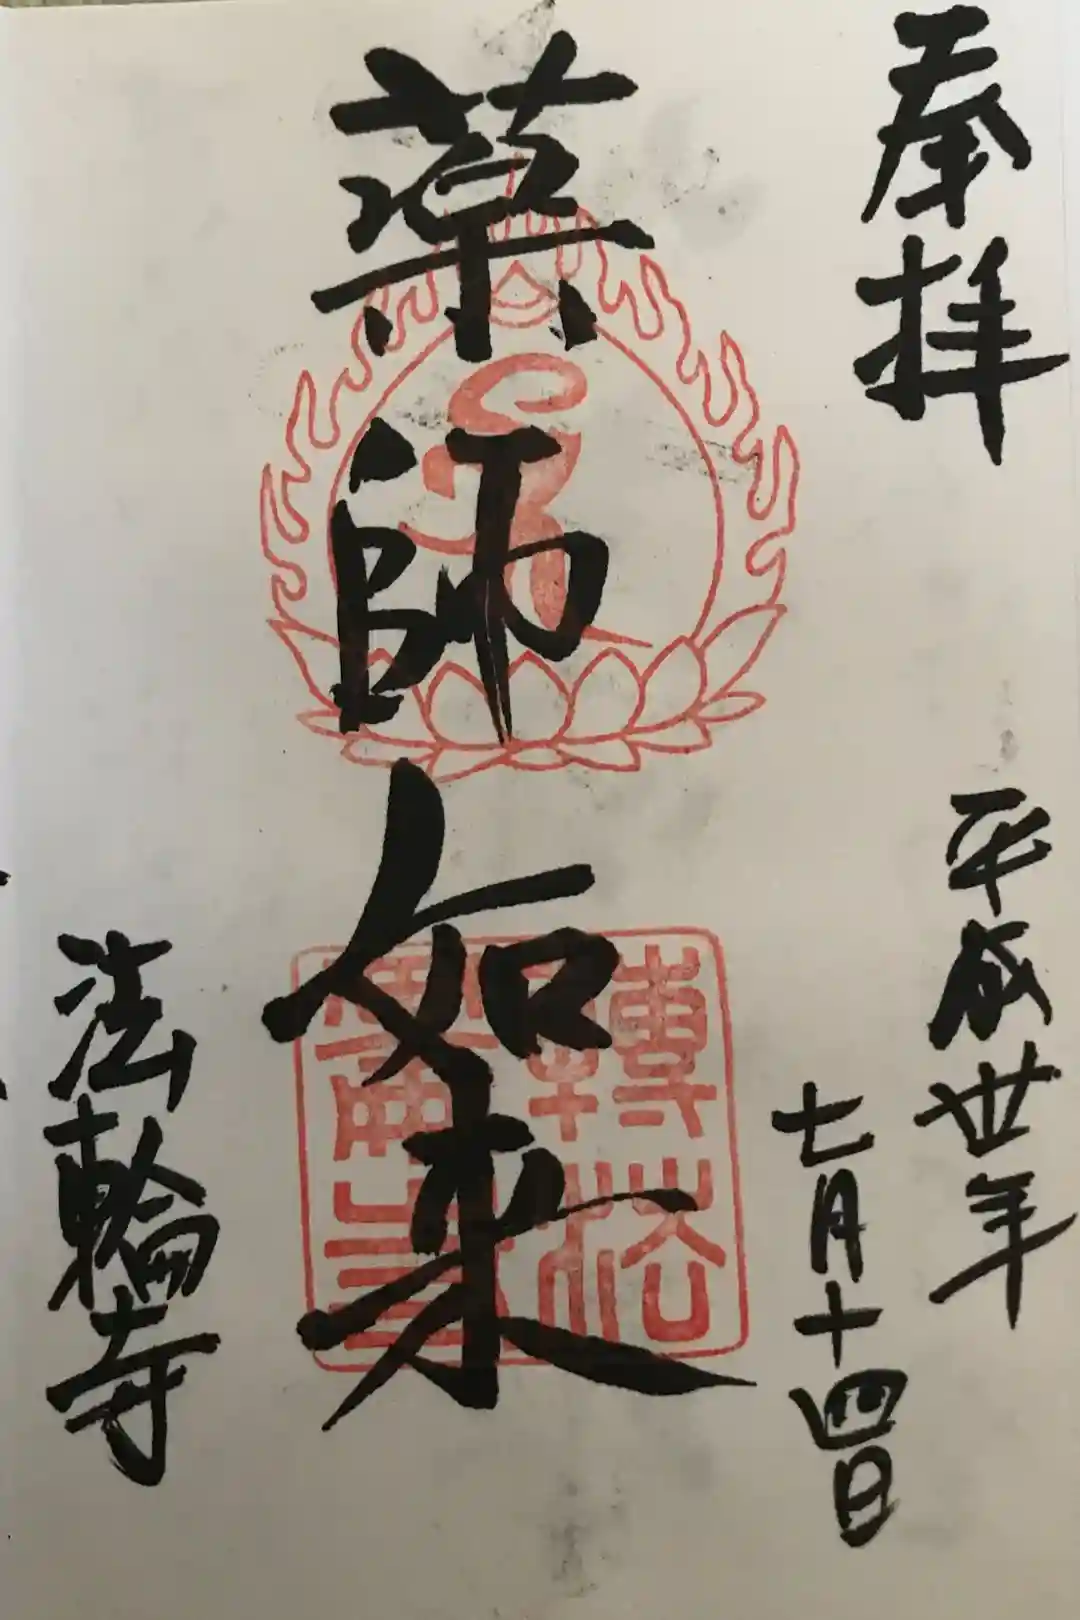 奉拝
平成丗年
七月十四日
薬師如来
法輪寺